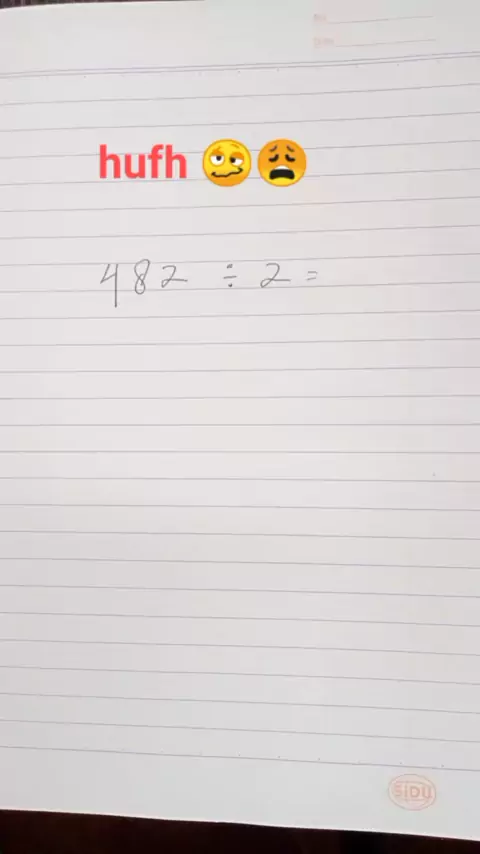 No
Date
hufh 🥴😩
482 ÷ 2 =
SIDU